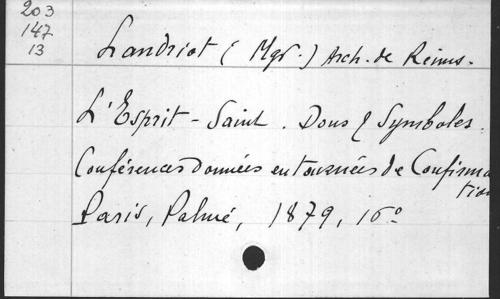 203
147
13
Landriot (Mgr.) Arch. de Reims.
L'Esprit-Saint. Dons & Symboles.
Conférences données en tournées de Confirma
tion
Paris, Palmé, 1879, 16º